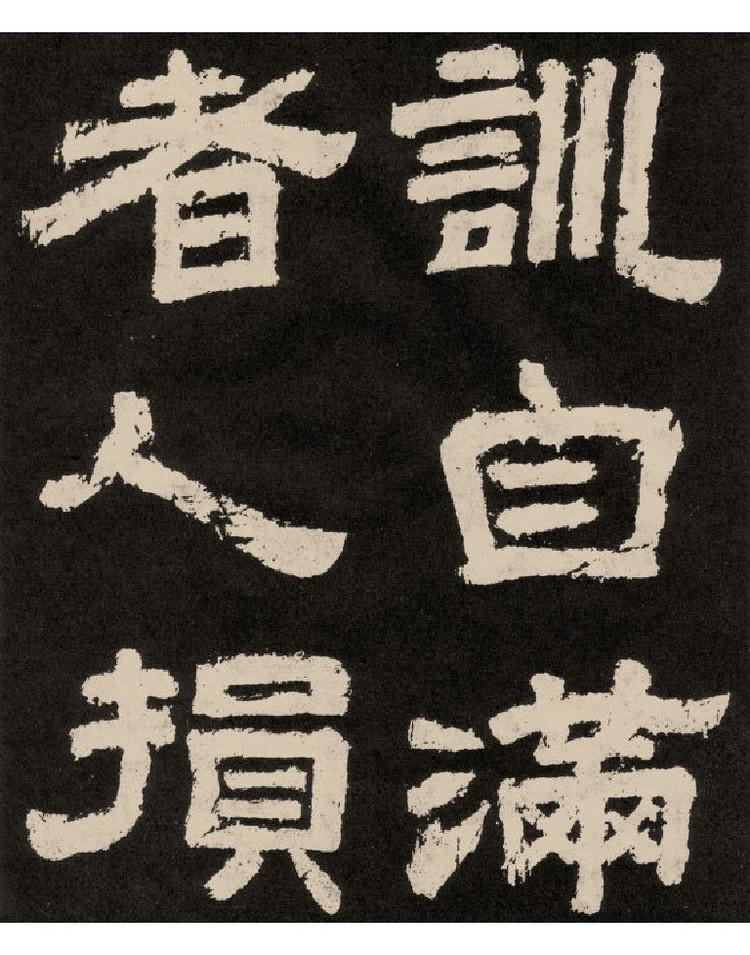 訓自滿
者人損